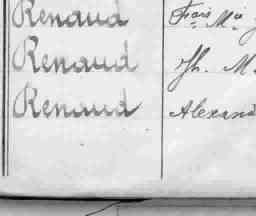 Renaud Frois Mie
Renaud Jh. M.
Renaud Alexand